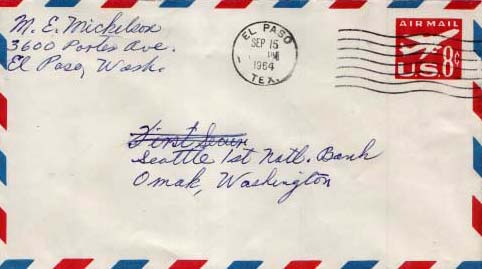 M. E. Mickelson
3600 Porter Ave.
El Paso, Wash.
EL PASO
SEP 15
PM
1964
TEX.
AIR MAIL
U.S. 8¢
First Secur
Seattle 1st Natl. Bank
Omak, Washington